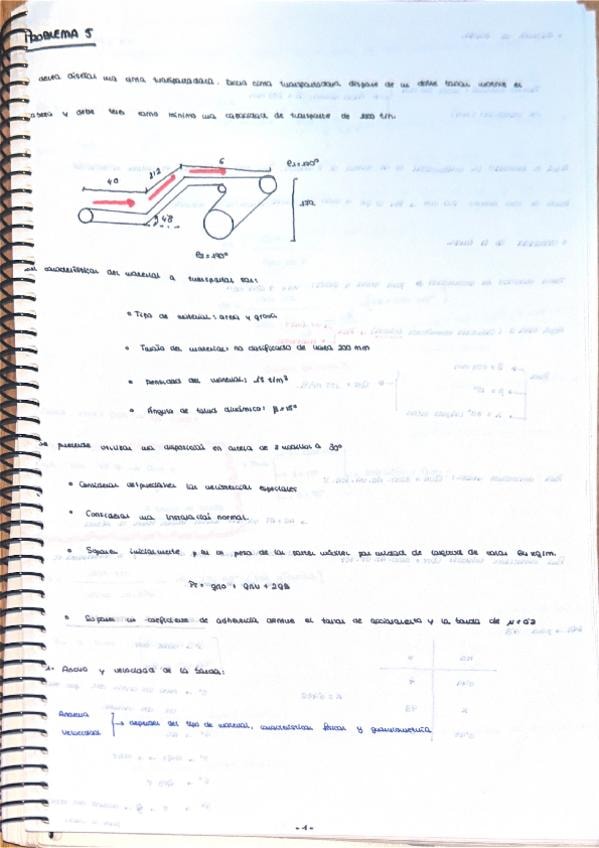 PROBLEMA 5
desea diseñar una cinta transportadora. Dicha cinta transportadora dispone de un doble tambor motriz en
cabeza y debe tener como mínimo una capacidad de transporte de t/h.
40
212
6
4,8
características del material a transportar son:
• Tipo de material: arena y grava
• Tamaño del material: no clasificado de hasta 200 mm
• Densidad del material: t/m³
• Ángulo de talud dinámico: β = 15°
Se pretende utilizar una disposición en artesa de 3 rodillos a 30°
• Considerar despreciables las resistencias especiales
• Considerar una instalación normal.
• Suponer inicialmente un peso de las partes móviles por unidad de longitud de kg/m.
• Suponer un coeficiente de adherencia entre el tambor de accionamiento y la banda de
1. Ancho y velocidad de la banda:
Anchura
Velocidad
→ depende del tipo de material, características físicas y granulometría
-1-